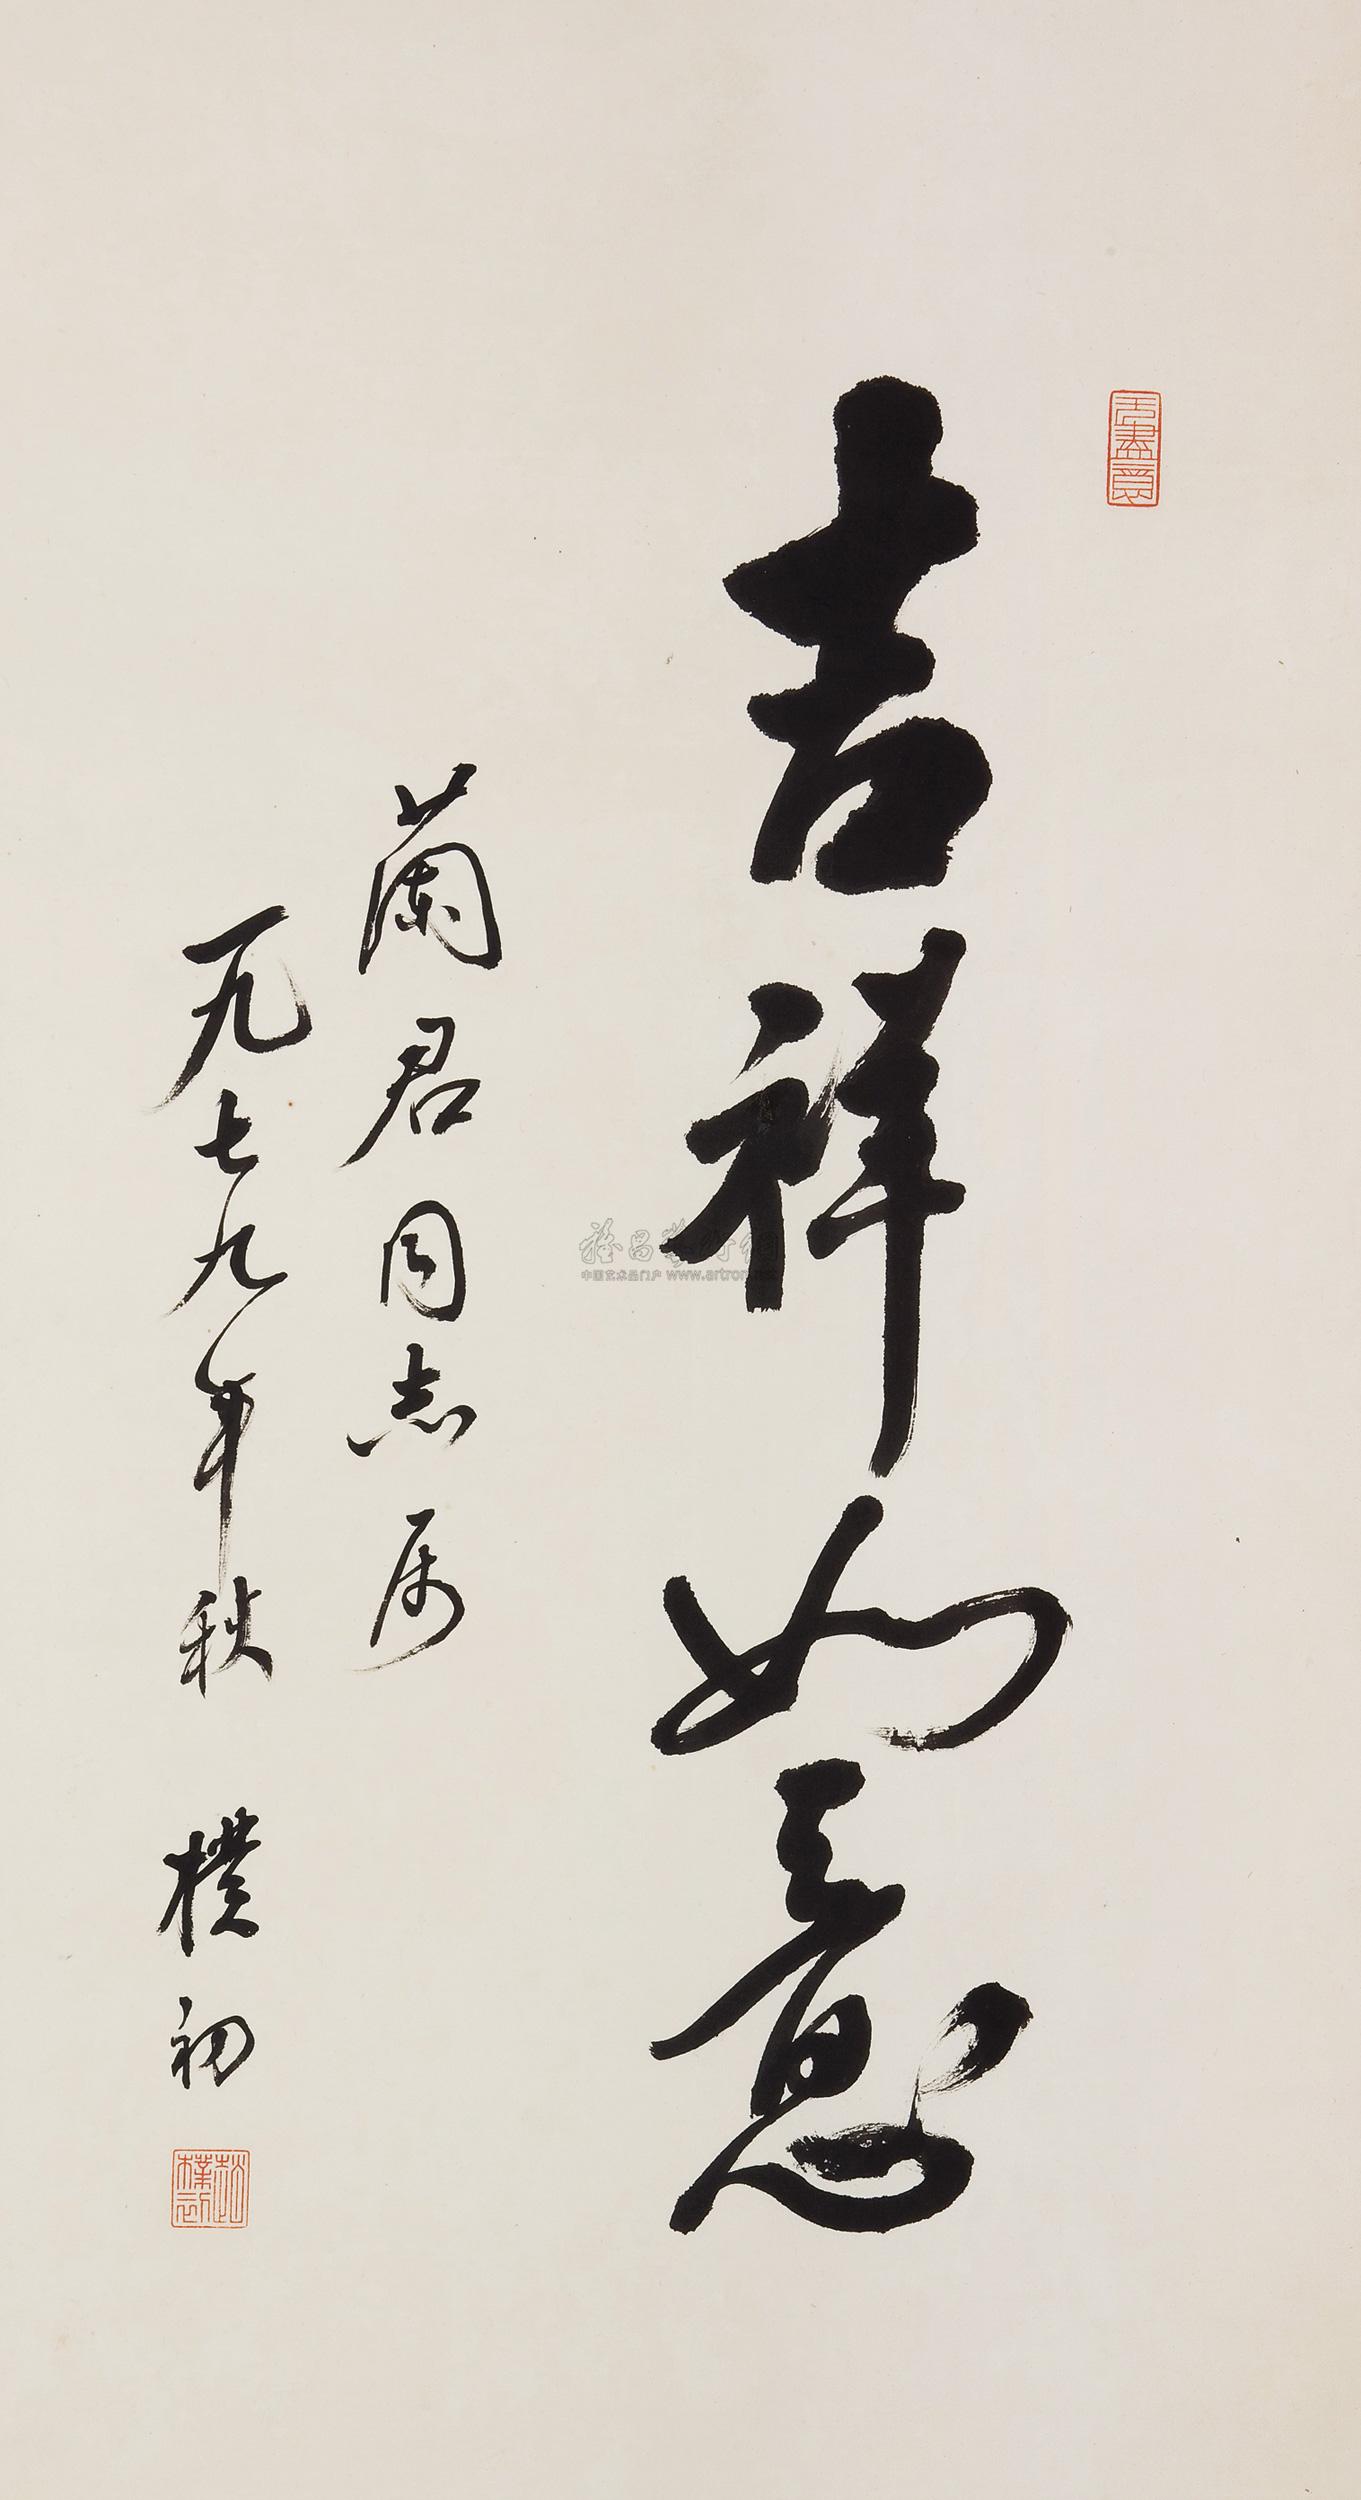 吉祥如意
蘭君同志属
一九七九年秋 樸初
无盡意
趙樸初
中国艺术品门户 www.artron.net